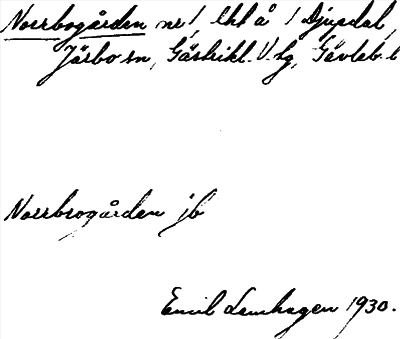 Norrbogården nr 1, lht å 1 Djupdal,
Järbo sn, Gästrikl. V. tg, Gävleb. l
Norrbrogården jb
Emil Lemhagen 1930.